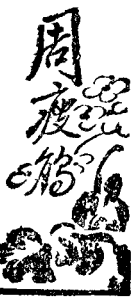 周瘦鵑